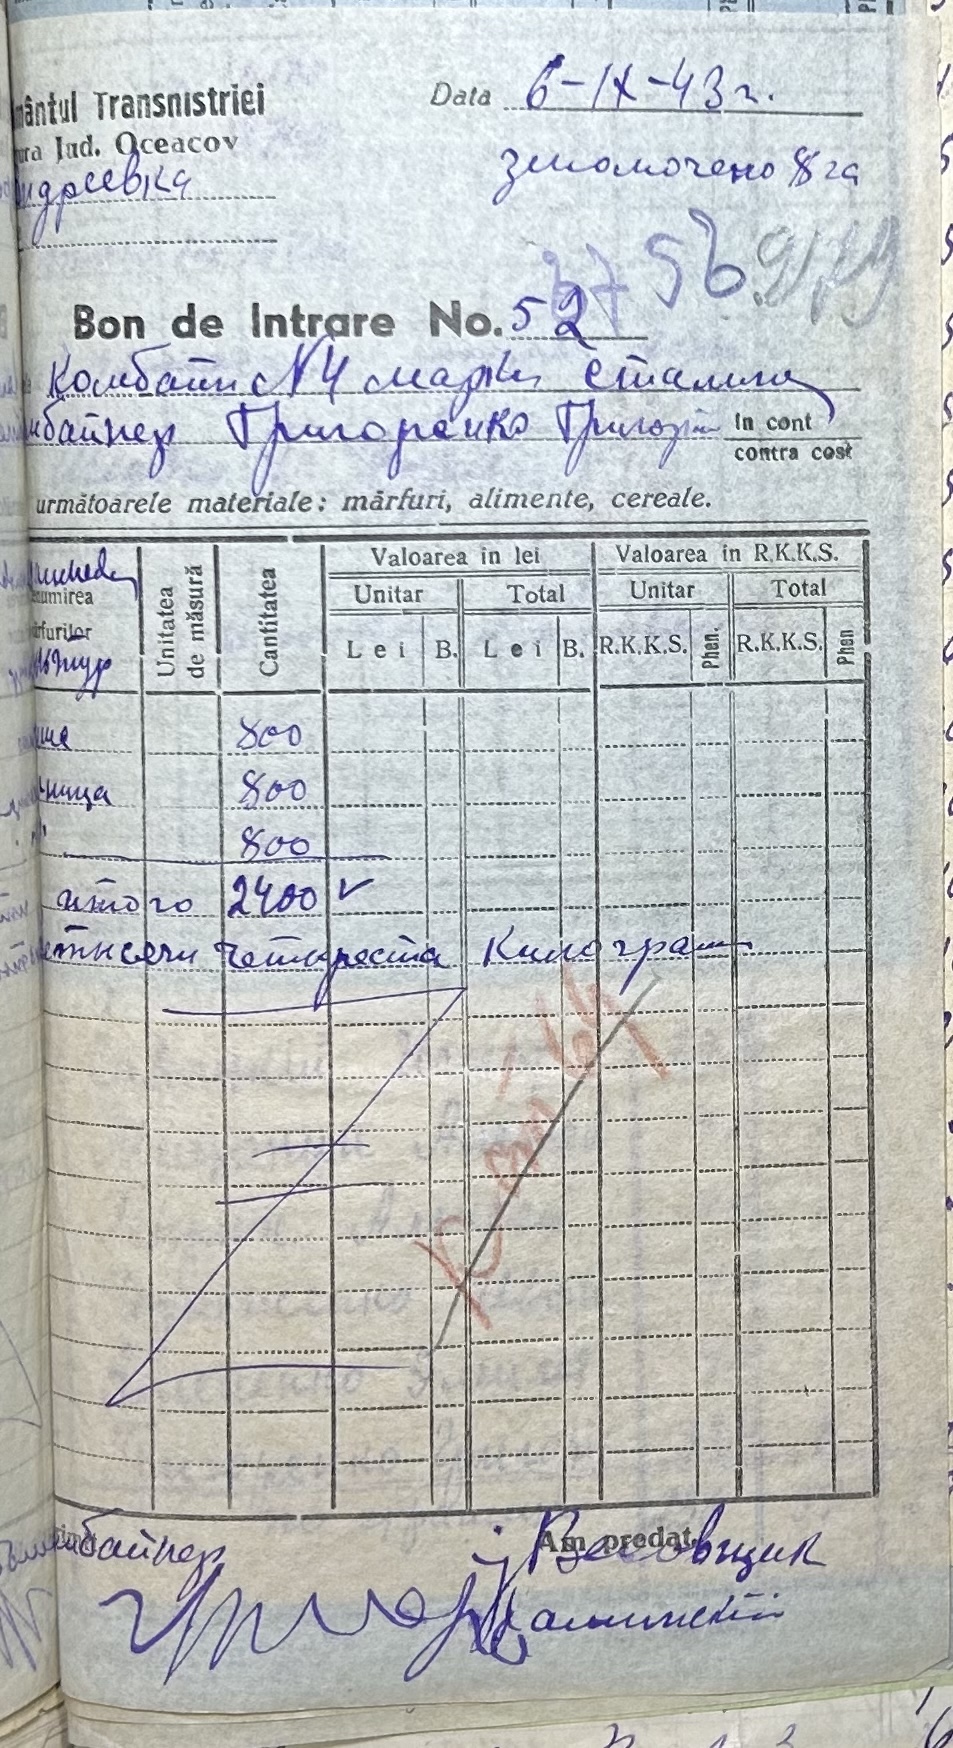 mântul Transnistriei
ura Jud. Oceacov
ндреевка
Data 6-IX-43 г.
змолочено 8 га
Bon de Intrare No. 52
Комбайн №4 марки Сталинец
мбайнер Григоренко Григорий
In cont
contra cost
următoarele materiale: mărfuri, alimente, cereale.
numirea
mărfurilor
Unitatea de măsură
Cantitatea
Valoarea in lei
Valoarea in R.K.K.S.
Unitar
Total
Unitar
Total
Lei
B.
Lei
B.
R.K.K.S.
Phen.
R.K.K.S.
Phen
800
ница 800
800
итого 2400
тысячи четыреста Килограмм
Комбайнер
Am predat,
Весовщик